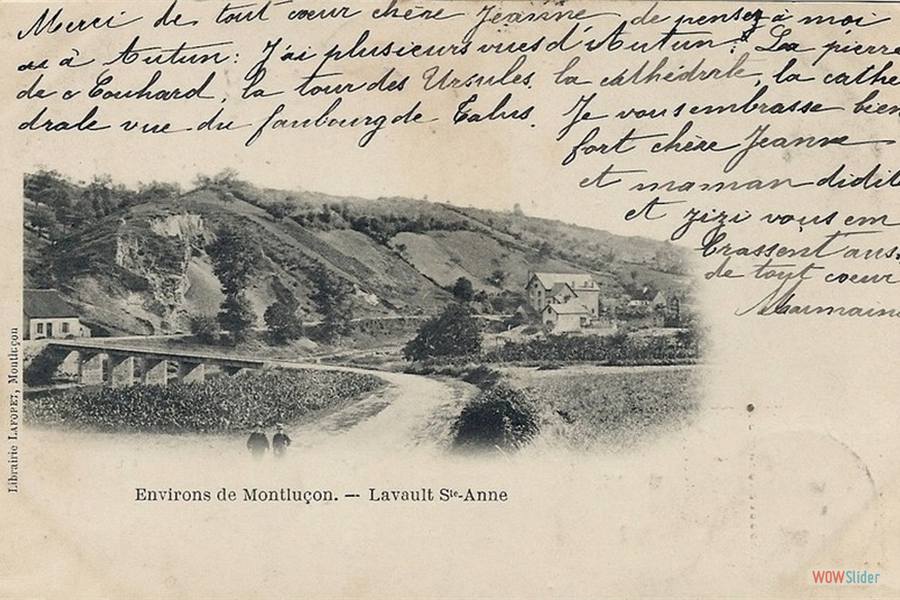 Merci de tout cœur chère Jeanne de penser à moi
à Autun: J'ai plusieurs vues d'Autun: La pierre
de Couhard, la tour des Ursules, la cathédrale, la cathé
drale vue du faubourg de Talus. Je vous embrasse bien
fort chère Jeanne
et maman didit
et zizi vous em
brassent aus
de tout cœur
Marraine
Librairie LAFOPET, Montluçon
Environs de Montluçon. — Lavault Ste-Anne
WOWSlider